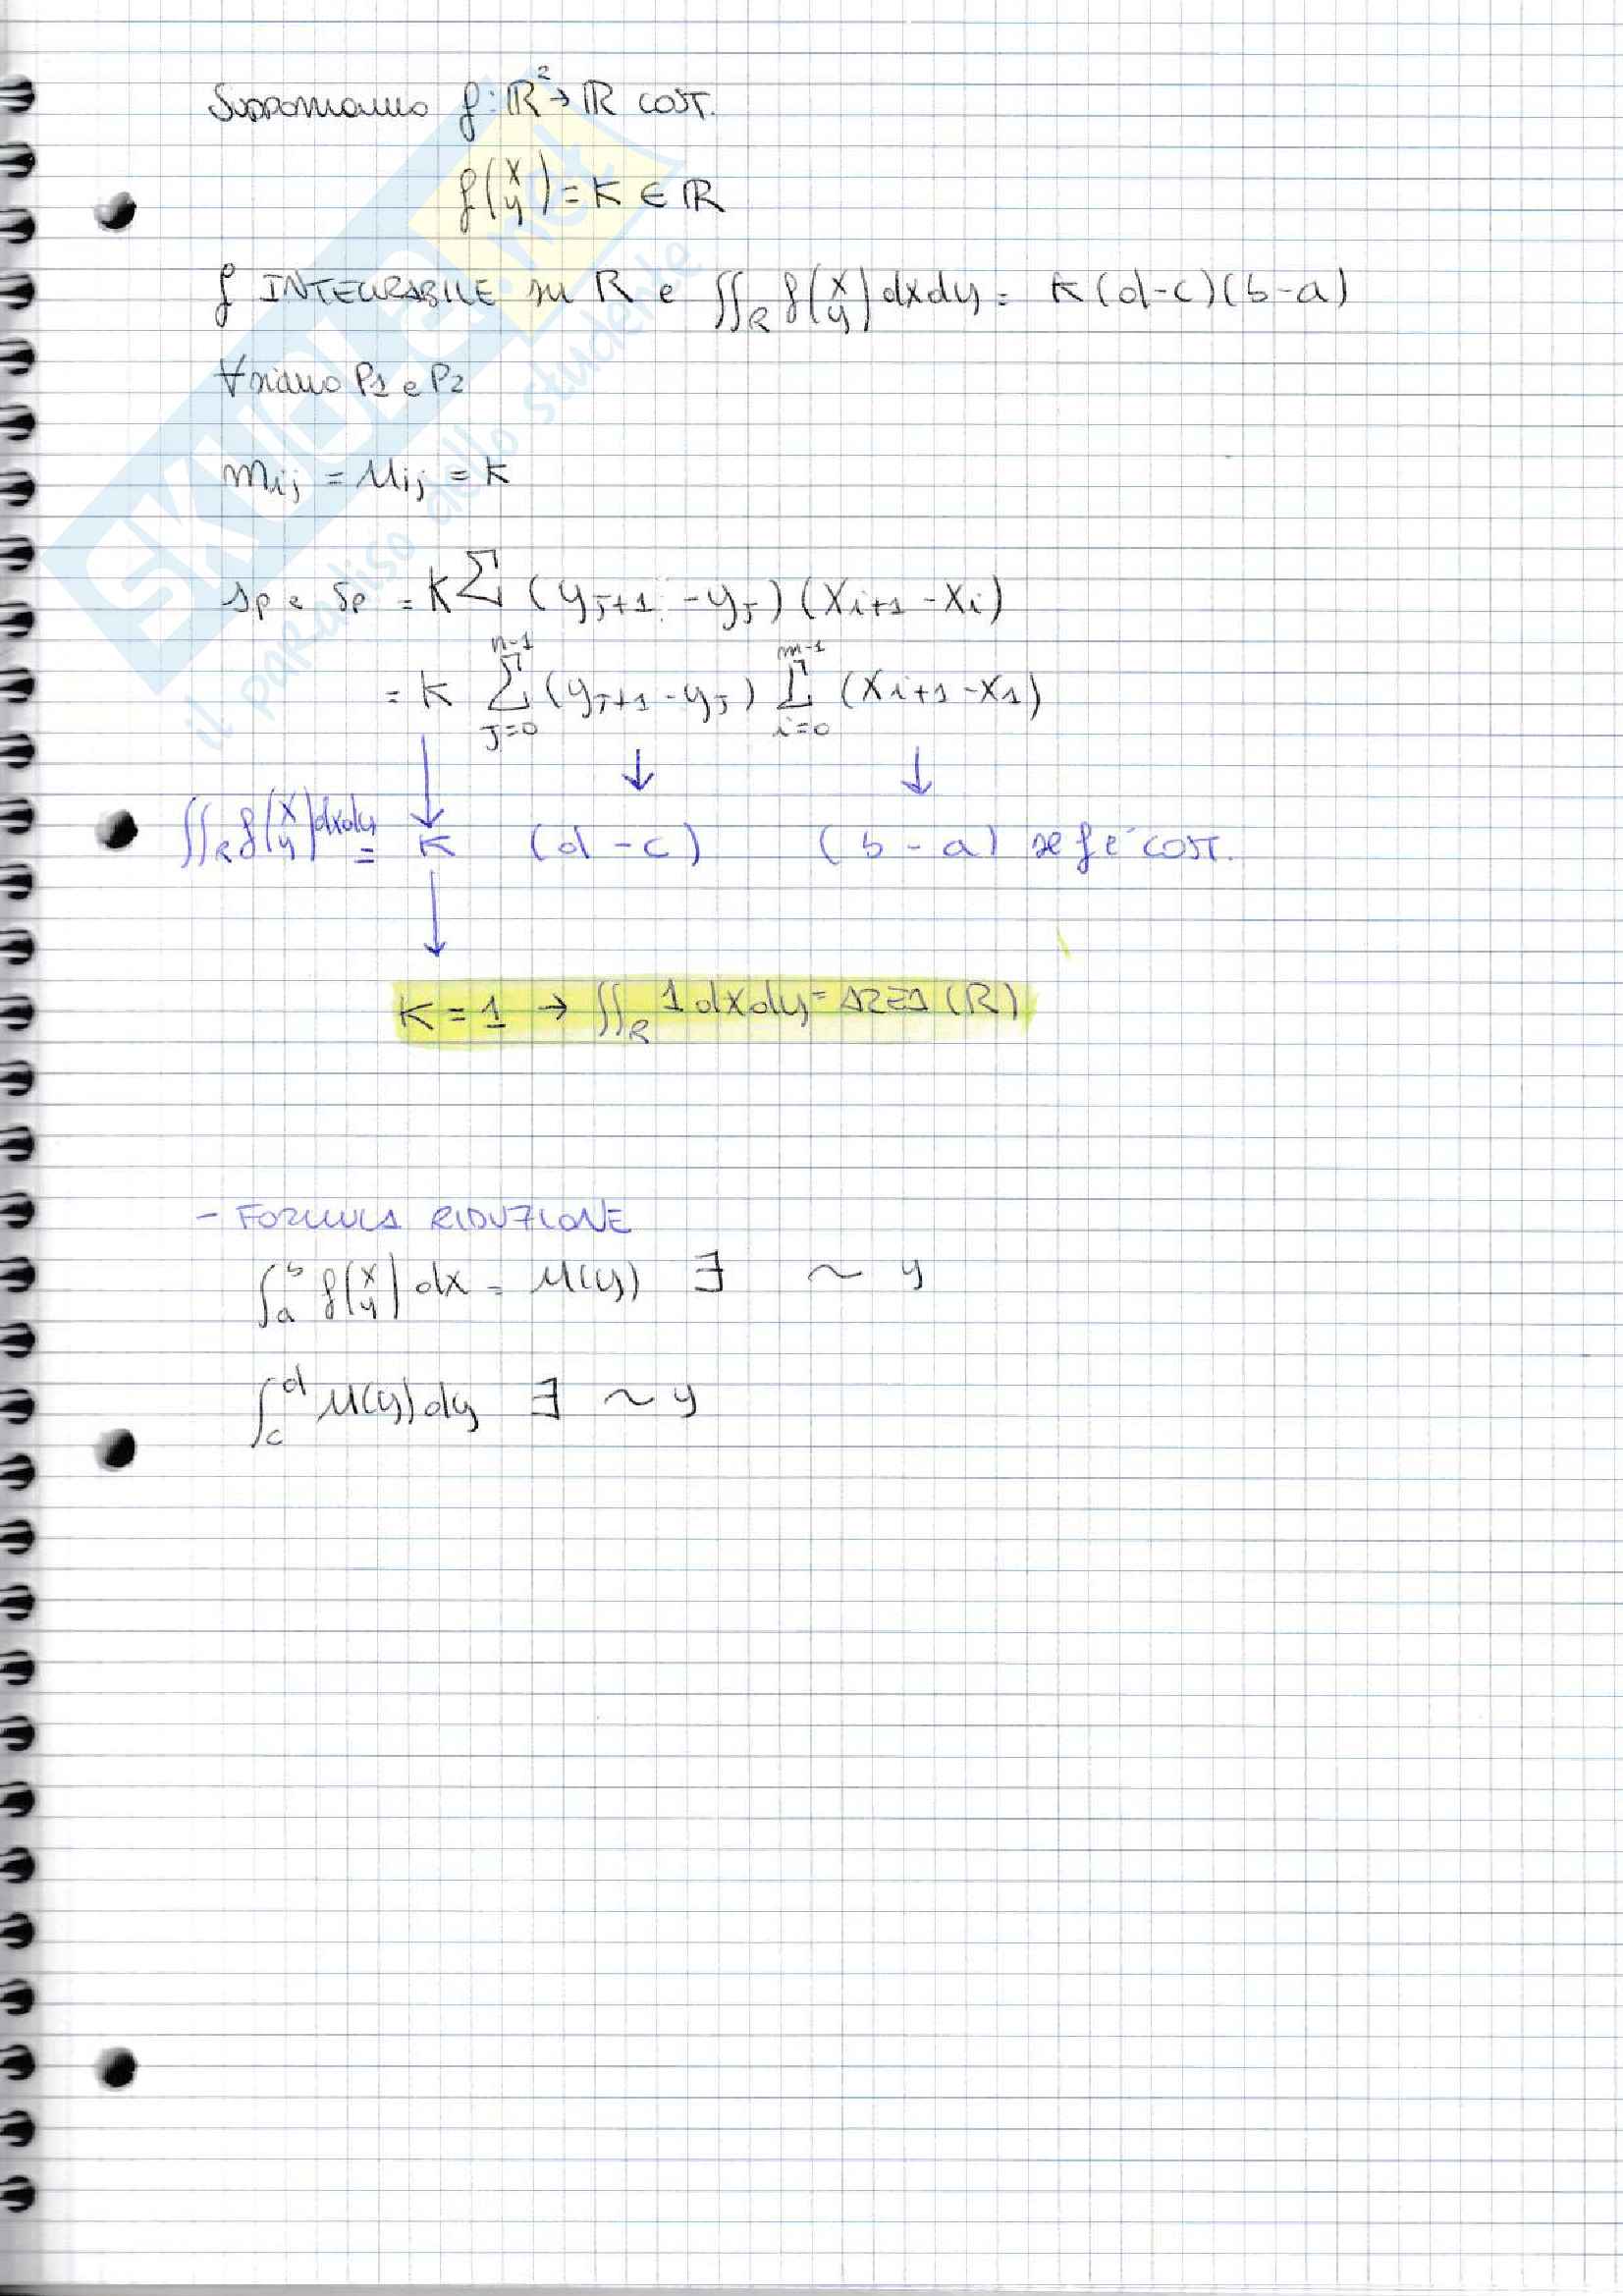 Supponiamo f: ℝ² → ℝ cost.
f(x y) = K ∈ ℝ
f INTEGRABILE su R e ∬_R f(x y) dxdy = K(d-c)(b-a)
∀ siano P1 e P2
m_ij = M_ij = K
s_p e S_p = K Σ (y_j+1 - y_j)(x_i+1 - x_i)
= K Σ_{j=0}^{n-1} (y_j+1 - y_j) Σ_{i=0}^{m-1} (x_i+1 - x_1)
↓ ↓ ↓
∬_R f(x y) dxdy = K (d-c) (b-a) se f è cost.
↓
K = 1 → ∬_R 1 dxdy = AREA (R)
- FORMULA RIDUZIONE
∫_a^b f(x y) dx = M(y) ∃ ~ y
∫_c^d M(y) dy ∃ ~ y
SKUOLA.net
il paradiso dello studente